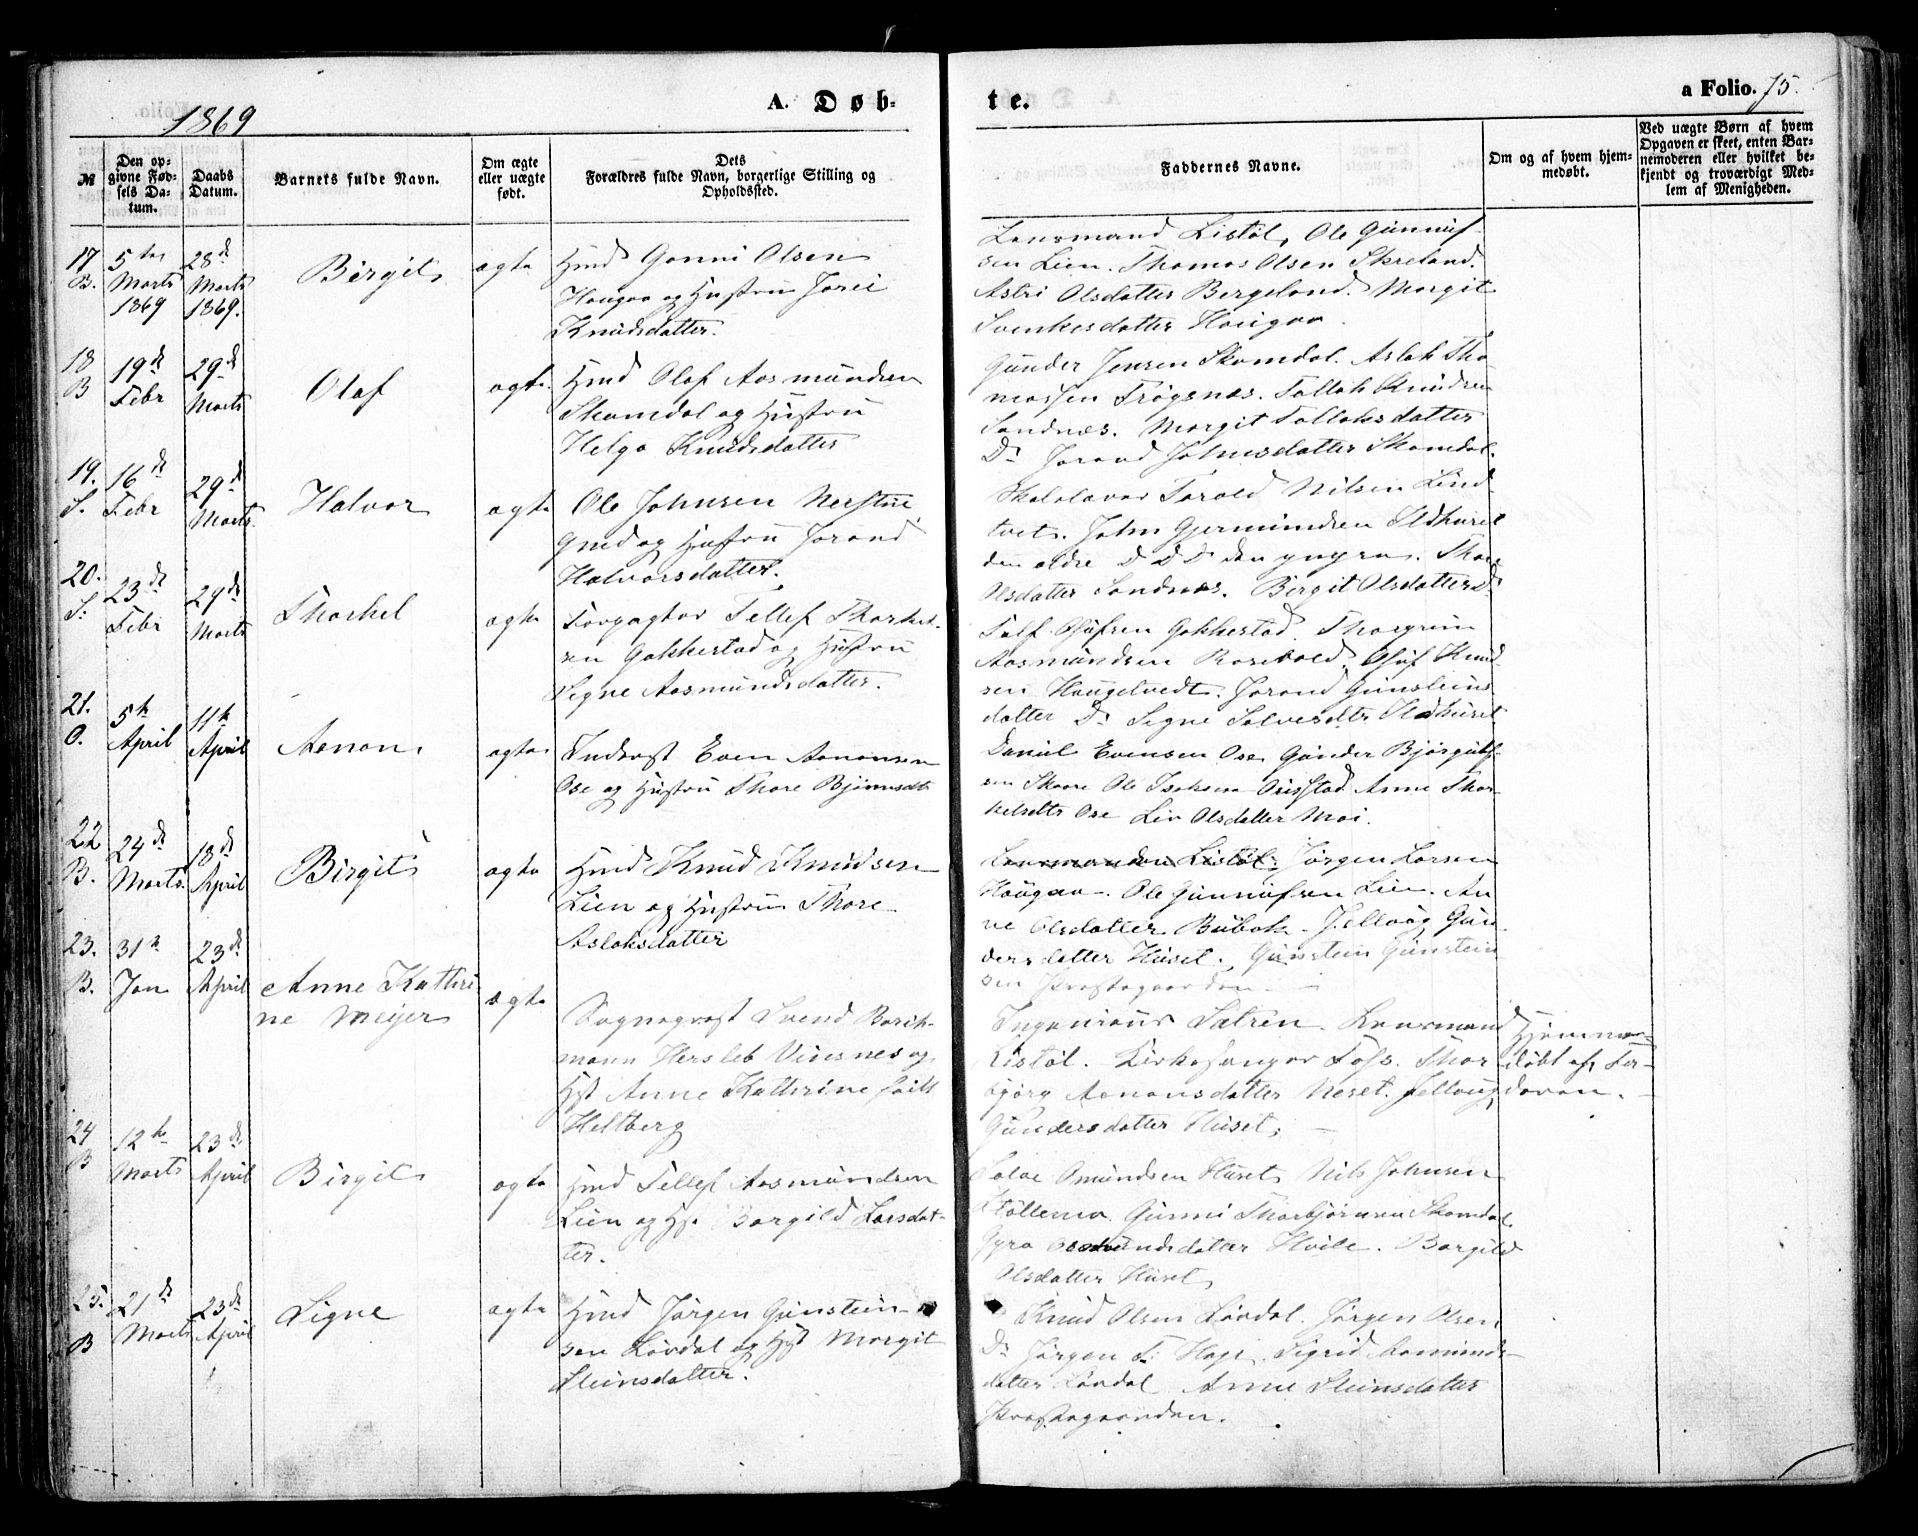 1869
A. Døb-
te.
a Folio. 75.
№
Den op-
givne Fød-
sels Da-
tum.
Daabs
Datum.
Barnets fulde Navn.
Om ægte
eller uægte
født.
Dets
Forældres fulde Navn, borgerlige Stilling og
Opholdssted.
Faddernes Navne.
Om og af hvem hjem-
medøbt.
Ved uægte Børn af hvem
Opgaven er skeet, enten Bar-
nemoderen eller hvilket be-
kjendt og troværdigt Med-
lem af Menigheden.
17
B.
5te
Marts
1869
28de
Marts
1869.
Birgit
ægte
Hmd Gunni Olsen
Haugaa og Hustru Jorei
Knudsdatter.
Lensmand Listøl, Ole Gunnuf-
sen Lien. Thomas Olsen Skreland.
Astri Olsdatter Bergeland. Margit
Svenkesdatter Haugaa.
18
B
19de
Febr
29de
Marts
Olaf
ægte.
Hmd Olaf Aasmundsen
Skomdal og Hustru
Helga Knudsdatter
Gunder Jensen Skomdal. Aslak Tho
massen Frøysnæs. Tallak Knudsen
Sandnæs. Margit Tallaksdatter
Do Jorand Johnsdatter Skomdal.
19.
S.
16de
Febr
29de
Marts.
Halvor
ægte
Ole Johnsen Nerstue
Gmd og Hustru Jorand
Halvorsdatter.
Skolelærer Torald Nilsen Lind-
tvet. John Gjermundsen Ildhuset
den ældre D D D den yngre. Thore
Olsdatter Sandnæs. Birgit Olsdatter Do
20.
S.
23de
Febr
29de
Marts
Thorkel
ægte
Forpagter Tellef Thorkel-
sen Gakkestad og Hustru
Signe Aasmundsdatter.
Talf Olufsen Gakkestad. Thorgrim
Aasmundsen Rosebold. Oluf Knud-
sen Haugetvedt. Jorand Gunsteins
datter Do Signe Salvesdtr Ildhuset
21.
O.
5te
April
11te
April
Aanon
ægte
Inderst Even Aanonsen
Ose og Hustru Thore Bjørnsdtr
Daniel Evensen Ose Gunder Bjørgulf-
sen Skaare Ole Isaksen Ørisstad Anne Thor-
kelsdtr Ose Liv Olsdatter Moi.
22
B.
24de
Marts.
18de
April
Birgit
ægte
Hmd Knud Knudsen
Lien og Hustru Thore
Aslaksdatter
Lensmanden Listøl; Jørgen Larsen
Haugaa. Ole Gunnufsen Lien. An
ne Olsdatter Bubak. Jellaug Gun-
dersdatter Huset. Gunstein Gunstein
sen Præstegaarden.
23.
B.
31te
Jan
23de
April
Anne Kathri
ne Meyer
ægte
Sogneprest Svend Borch-
mann Hersleb Vinsnes og
Hst Anne Kathrine født
Heltberg
Ingeniør Sætren. Lensmand
Listøl. Kirkesanger Foss. Thor
bjørg Aanonsdatter Neset. Jellaug
Gundersdatter Huset.
Hjemme-
døbt af Fa-
deren.
24
B
12te
Marts
23de
April
Birgit
ægte
Hmd Tellef Aasmundsen
Lien og Hst Borgild Larsdat-
ter.
Salve Omundsen Huset Nils Johnsen
Støllema. Gunni Thorbjørnsen Skomdal
Gyro Osmundsdatter Hvile. Borgild
Olsdatter Huset
25.
B
21de
Marts
23de
April
Signe
ægte
Hmd Jørgen Gunstein-
sen Løvdal og Hst Margit
Steinsdatter.
Knud Olsen Løvdal. Jørgen Olsen
Do Jørgen T. Hage. Sigrid Aasmunds-
datter Løvdal Anne Steinsdatter
Præstegaarden.